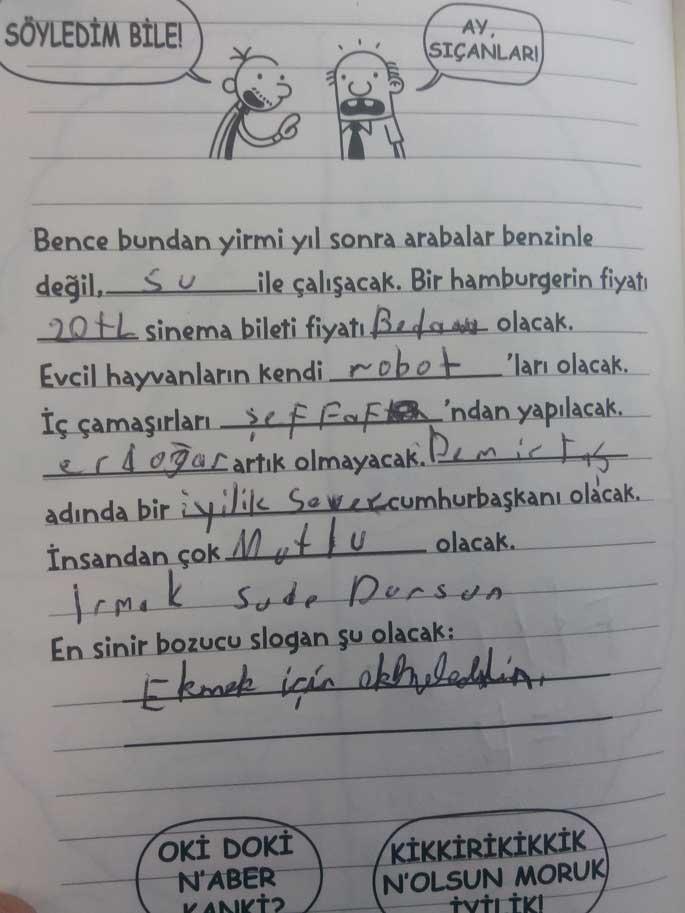 SÖYLEDİM BİLE!
AY,
SIÇANLAR!
Bence bundan yirmi yıl sonra arabalar benzinle
değil, su ile çalışacak. Bir hamburgerin fiyatı
20tL sinema bileti fiyatı Bedava olacak.
Evcil hayvanların kendi robot 'ları olacak.
İç çamaşırları şeffaf 'ndan yapılacak.
erdoğan artık olmayacak. Demirtaş
adında bir iyilik sever cumhurbaşkanı olacak.
İnsandan çok Mutlu olacak.
İrmak Sude Dursun
En sinir bozucu slogan şu olacak:
Ekmek için
OKİ DOKİ
N'ABER
KANKİ?
KİKKİRİKİKKİK
N'OLSUN MORUK
İYİLİK!